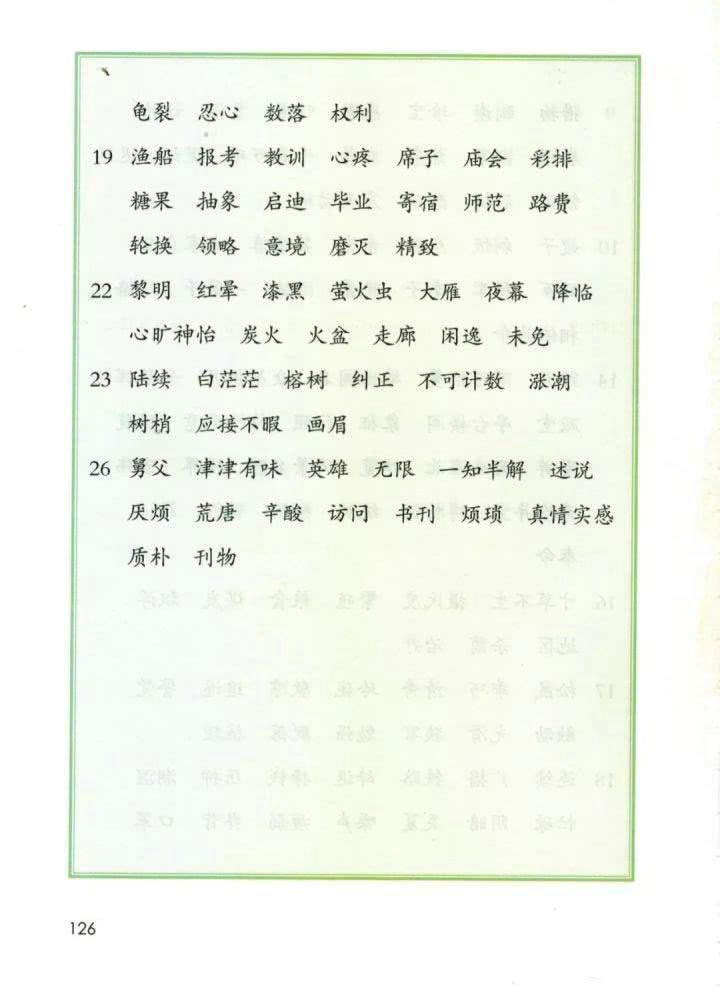 龟裂 忍心 数落 权利
19 渔船 报考 教训 心疼 席子 庙会 彩排
糖果 抽象 启迪 毕业 寄宿 师范 路费
轮换 领略 意境 磨灭 精致
22 黎明 红晕 漆黑 萤火虫 大雁 夜幕 降临
心旷神怡 炭火 火盆 走廊 闲逸 未免
23 陆续 白茫茫 榕树 纠正 不可计数 涨潮
树梢 应接不暇 画眉
26 舅父 津津有味 英雄 无限 一知半解 述说
厌烦 荒唐 辛酸 访问 书刊 烦琐 真情实感
质朴 刊物
126